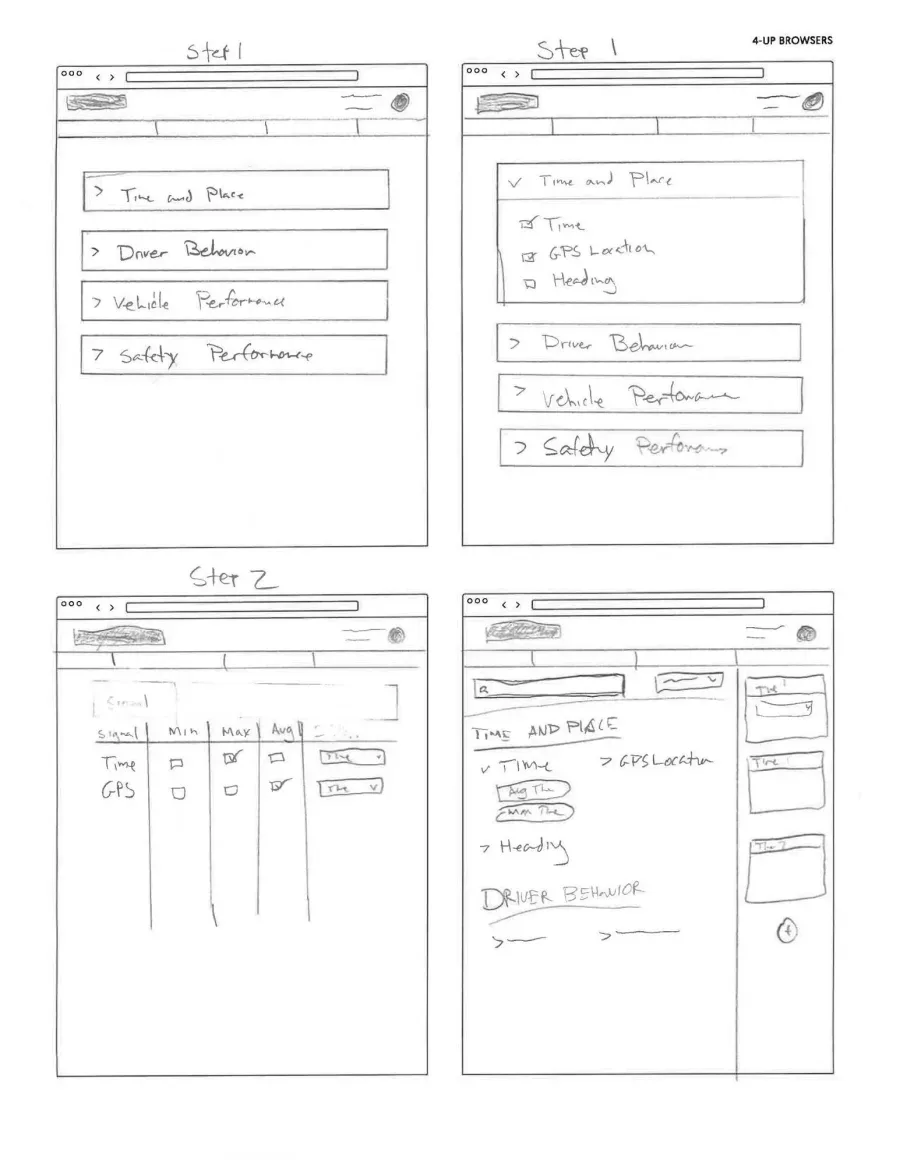 4-UP BROWSERS
Step 1
> Time and Place
> Driver Behavior
> Vehicle Performance
> Safety Performance
Step 1
Time and Place
Time
GPS Location
Heading
> Driver Behavior
> Vehicle Performance
> Safety Performance
Step 2
Signal
Signal Min Max Avg
Time
GPS
TIME AND PLACE
Time > GPS Location
Avg
> Heading
DRIVER BEHAVIOR